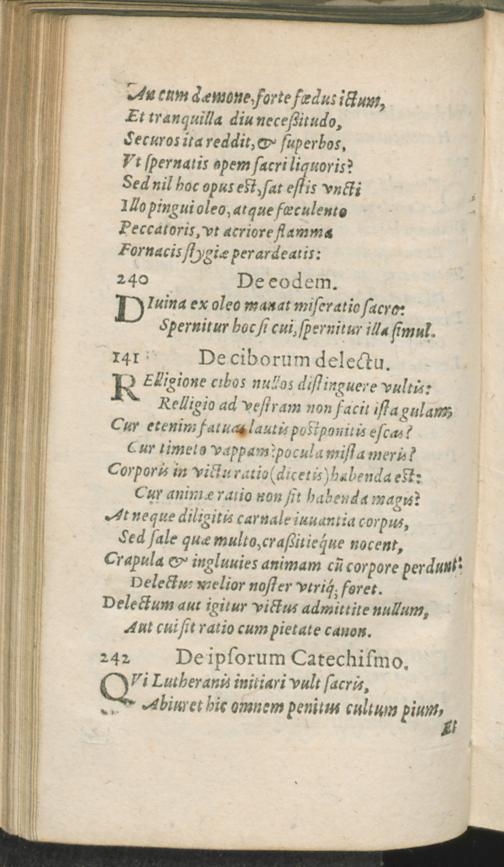 An cum dæmone, forte fœdus ictum,
Et tranquilla diu neceßitudo,
Securos ita reddit, & superbos,
Vt spernatis opem sacri liquoris?
Sed nil hoc opus est, sat estis vncti
Illo pingui oleo, atque fœculento
Peccatoris, vt acriore flamma
Fornacis stygiæ perardeatis:
240 De eodem.
DIuina ex oleo manat miseratio sacro:
Spernitur hoc si cui, spernitur illa simul.
141 De ciborum delectu.
RElligione cibos nullos distinguere vultis:
Relligio ad vestram non facit ista gulam,
Cur etenim fatuas lautis postponitis escas?
Cur timeto vappam? pocula mista meris?
Corporis in victu ratio (dicetis) habenda est:
Cur animæ ratio non sit habenda magis?
At neque diligitis carnale iuuantia corpus,
Sed sale quæ multo, craßitieq́ue nocent,
Crapula & ingluuies animam cū corpore perdunt:
Delectus melior noster vtriq́; foret.
Delectum aut igitur victus admittite nullum,
Aut cui sit ratio cum pietate canon.
242 De ipsorum Catechismo.
QVi Lutheranis initiari vult sacris,
Abiuret hic omnem penitus cultum pium,
Et